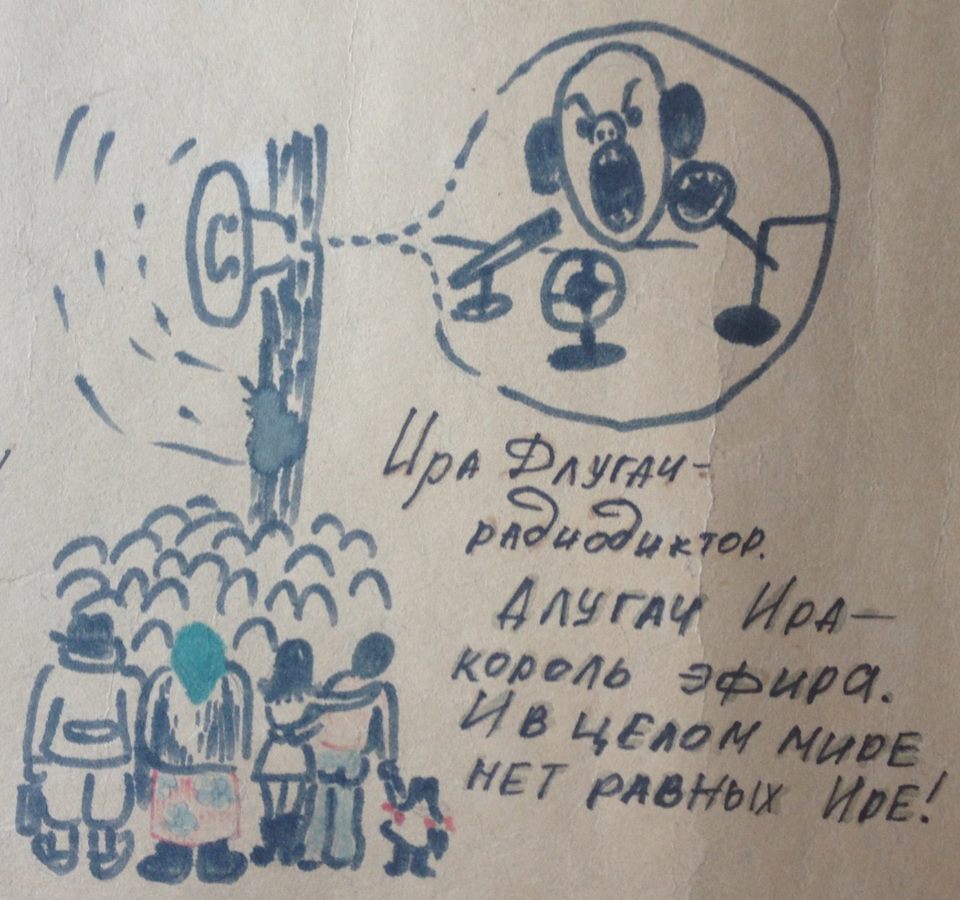 Ира Длугач-
радиодиктор.
Длугач Ира—
король эфира.
И в целом мире
нет равных Ире!